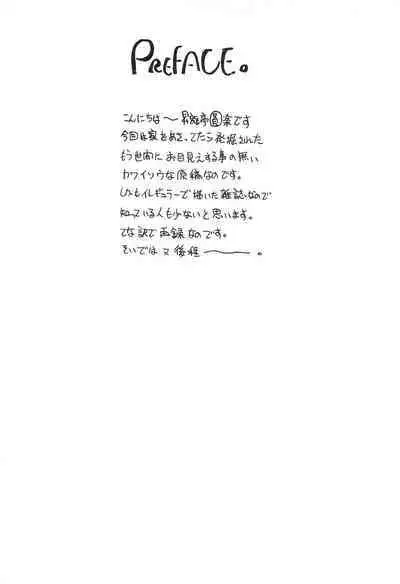 PREFACE。
こんにちは〜昇龍亭圓楽です
今回は家をあさってたら発掘された
もう世間にお目見えする事の無い
カワイソウな原稿なのです。
しかもイレギュラーで描いた雑誌なので
知っている人も少ないと思います。
てな訳で再録なのです。
そいでは又後程———。